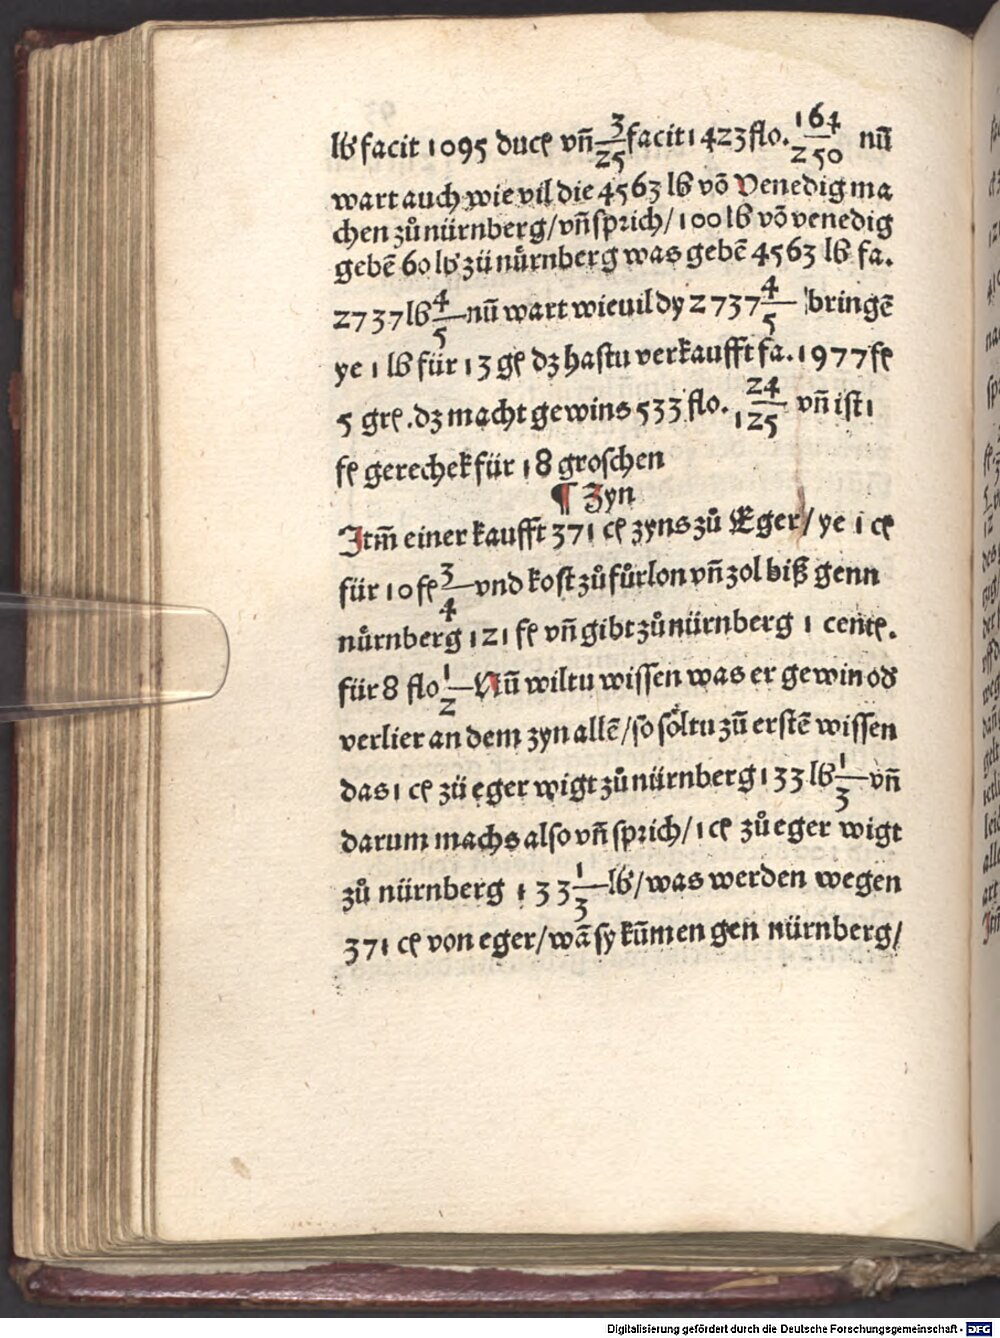 lb facit 1095 ducꝭ vñ 3/25 facit 1423 flo. 164/250 nū
wart auch wie vil die 4563 lb võ Venedig ma
chen zů nürnberg/vñ sprich/100 lb võ venedig
gebẽ 60 lb zü nůrnberg was gebẽ 4563 lb fa.
2737 lb 4/5 nū wart wieuil dy 2737 4/5 bringẽ
ye 1 lb für 13 gꝭ dz hastu verkaufft fa. 1977 fꝭ
5 grꝭ. dz macht gewins 533 flo. 24/125 vñ ist 1
fꝭ gerechet für 18 groschen
¶ Zyn
Itm̃ einer kaufft 371 cꝭ zyns zů Eger/ye 1 cꝭ
für 10 fꝭ 3/4 vnd kost zů fůrlon vñ zol biß genn
nůrnberg 121 fꝭ vñ gibt zů nürnberg 1 centꝭ.
für 8 flo 1/2 Nū wiltu wissen was er gewin od
verlier an dem zyn allẽ/so sőltu zū erstẽ wissen
das 1 cꝭ zü eger wigt zů nürnberg 133 lb 1/3 vñ
darum machs also vñ sprich/1 cꝭ zů eger wigt
zů nürnberg 133 1/3 lb/was werden wegen
371 cꝭ von eger/wã sy kūmen gen nürnberg/
Digitalisierung gefördert durch die Deutsche Forschungsgemeinschaft - DFG